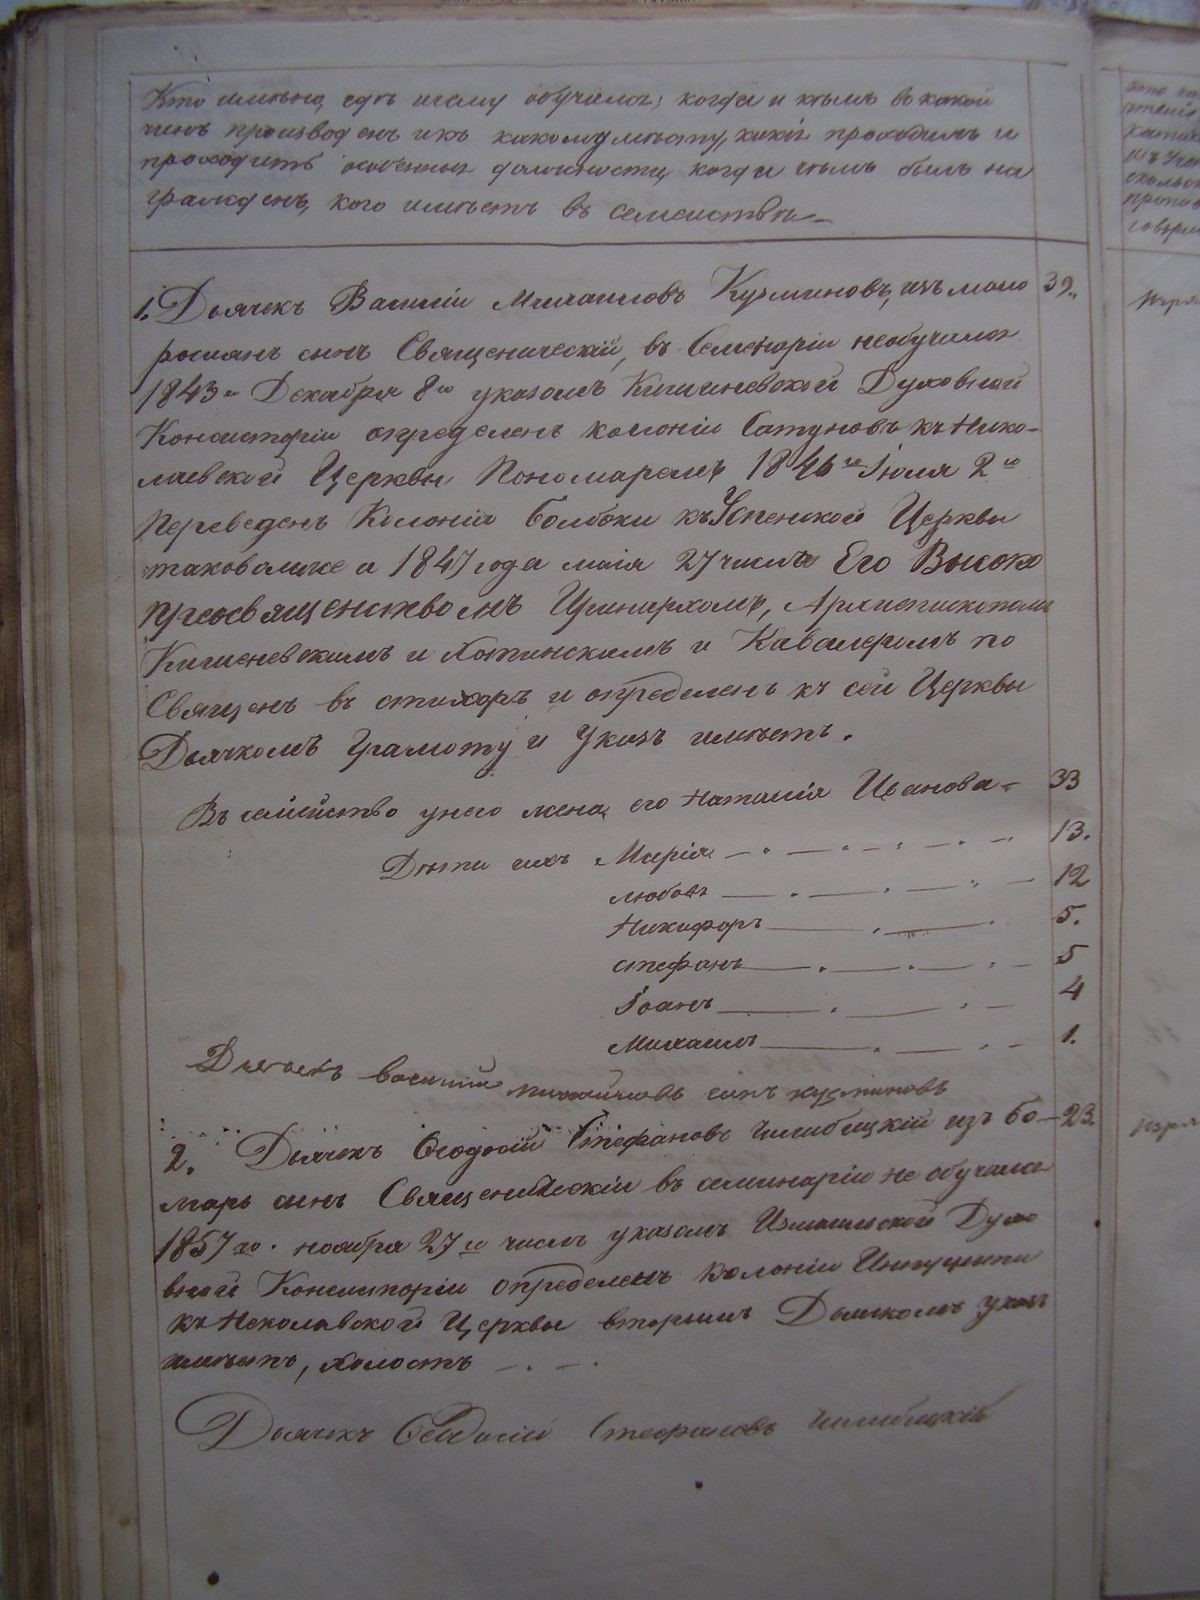 Кто именно, гдѣ и чему обучался; когда и кѣмъ въ какой
чинъ произведенъ и къ какому мѣсту, какія проходилъ и
проходитъ особенныя должности, когда и чѣмъ былъ на
гражденъ, кого имѣетъ въ семействѣ
1. Дьячекъ Василій Михаиловъ Кузминовъ, изъ мало 39.
росіянъ сынъ Священическій, въ Семенаріи необучался
1843го Декабря 8го указомъ Кишиневской Духовной
Консисторіи определенъ колоніи Сатуновъ къ Нико-
лаевской Церквы Пономаремъ 1846го Іюля 2го
Переведенъ Колоніи Болбоки къ Успенской Церквы
таковымже а 1847 года маія 27 числа Его Высоко
преосвященствомъ Иринархомъ, Архиепископомъ
Кишеневскимъ и Хотинскимъ и Кавалеромъ по
Священъ въ стихарь и определенъ къ сей Церквы
Дьячкомъ грамоту и Указъ имѣетъ.
Въ семейство унего жена, его Наталія Иванова 33
Дѣти ихъ Марія 13.
Любовь 12
Никифоръ 5.
Стефанъ 5
Іоанъ 4
Михаилъ 1.
Дячекъ Василий Михайловъ синъ Кузминовъ
2. Дьячекъ Ѳеодосій Стефановъ из бо- 23.
маръ синъ Священическій в семинаріи не обучался
1857го ноября 27го числ указомъ Измаильской Духо
вной Консисторіи определенъ Колоніи
къ Николавской Церквы вторымъ Дьячкомъ указ
имѣетъ, холостъ
Дьячекъ Ѳеодосій Стефановъ